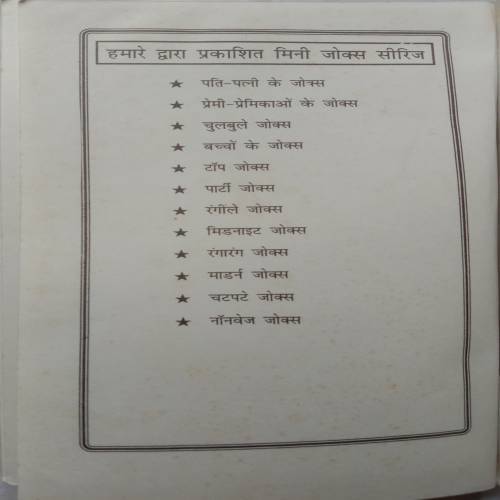 हमारे द्वारा प्रकाशित मिनी जोक्स सीरिज
★ पति-पत्नी के जोक्स
★ प्रेमी-प्रेमिकाओं के जोक्स
★ चुलबुले जोक्स
★ बच्चों के जोक्स
★ टॉप जोक्स
★ पार्टी जोक्स
★ रंगीले जोक्स
★ मिडनाइट जोक्स
★ रंगारंग जोक्स
★ माडर्न जोक्स
★ चटपटे जोक्स
★ नॉनवेज जोक्स